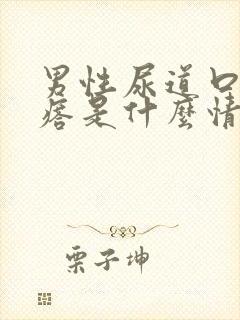 男性尿道口
痞是什麼情
栗子坤